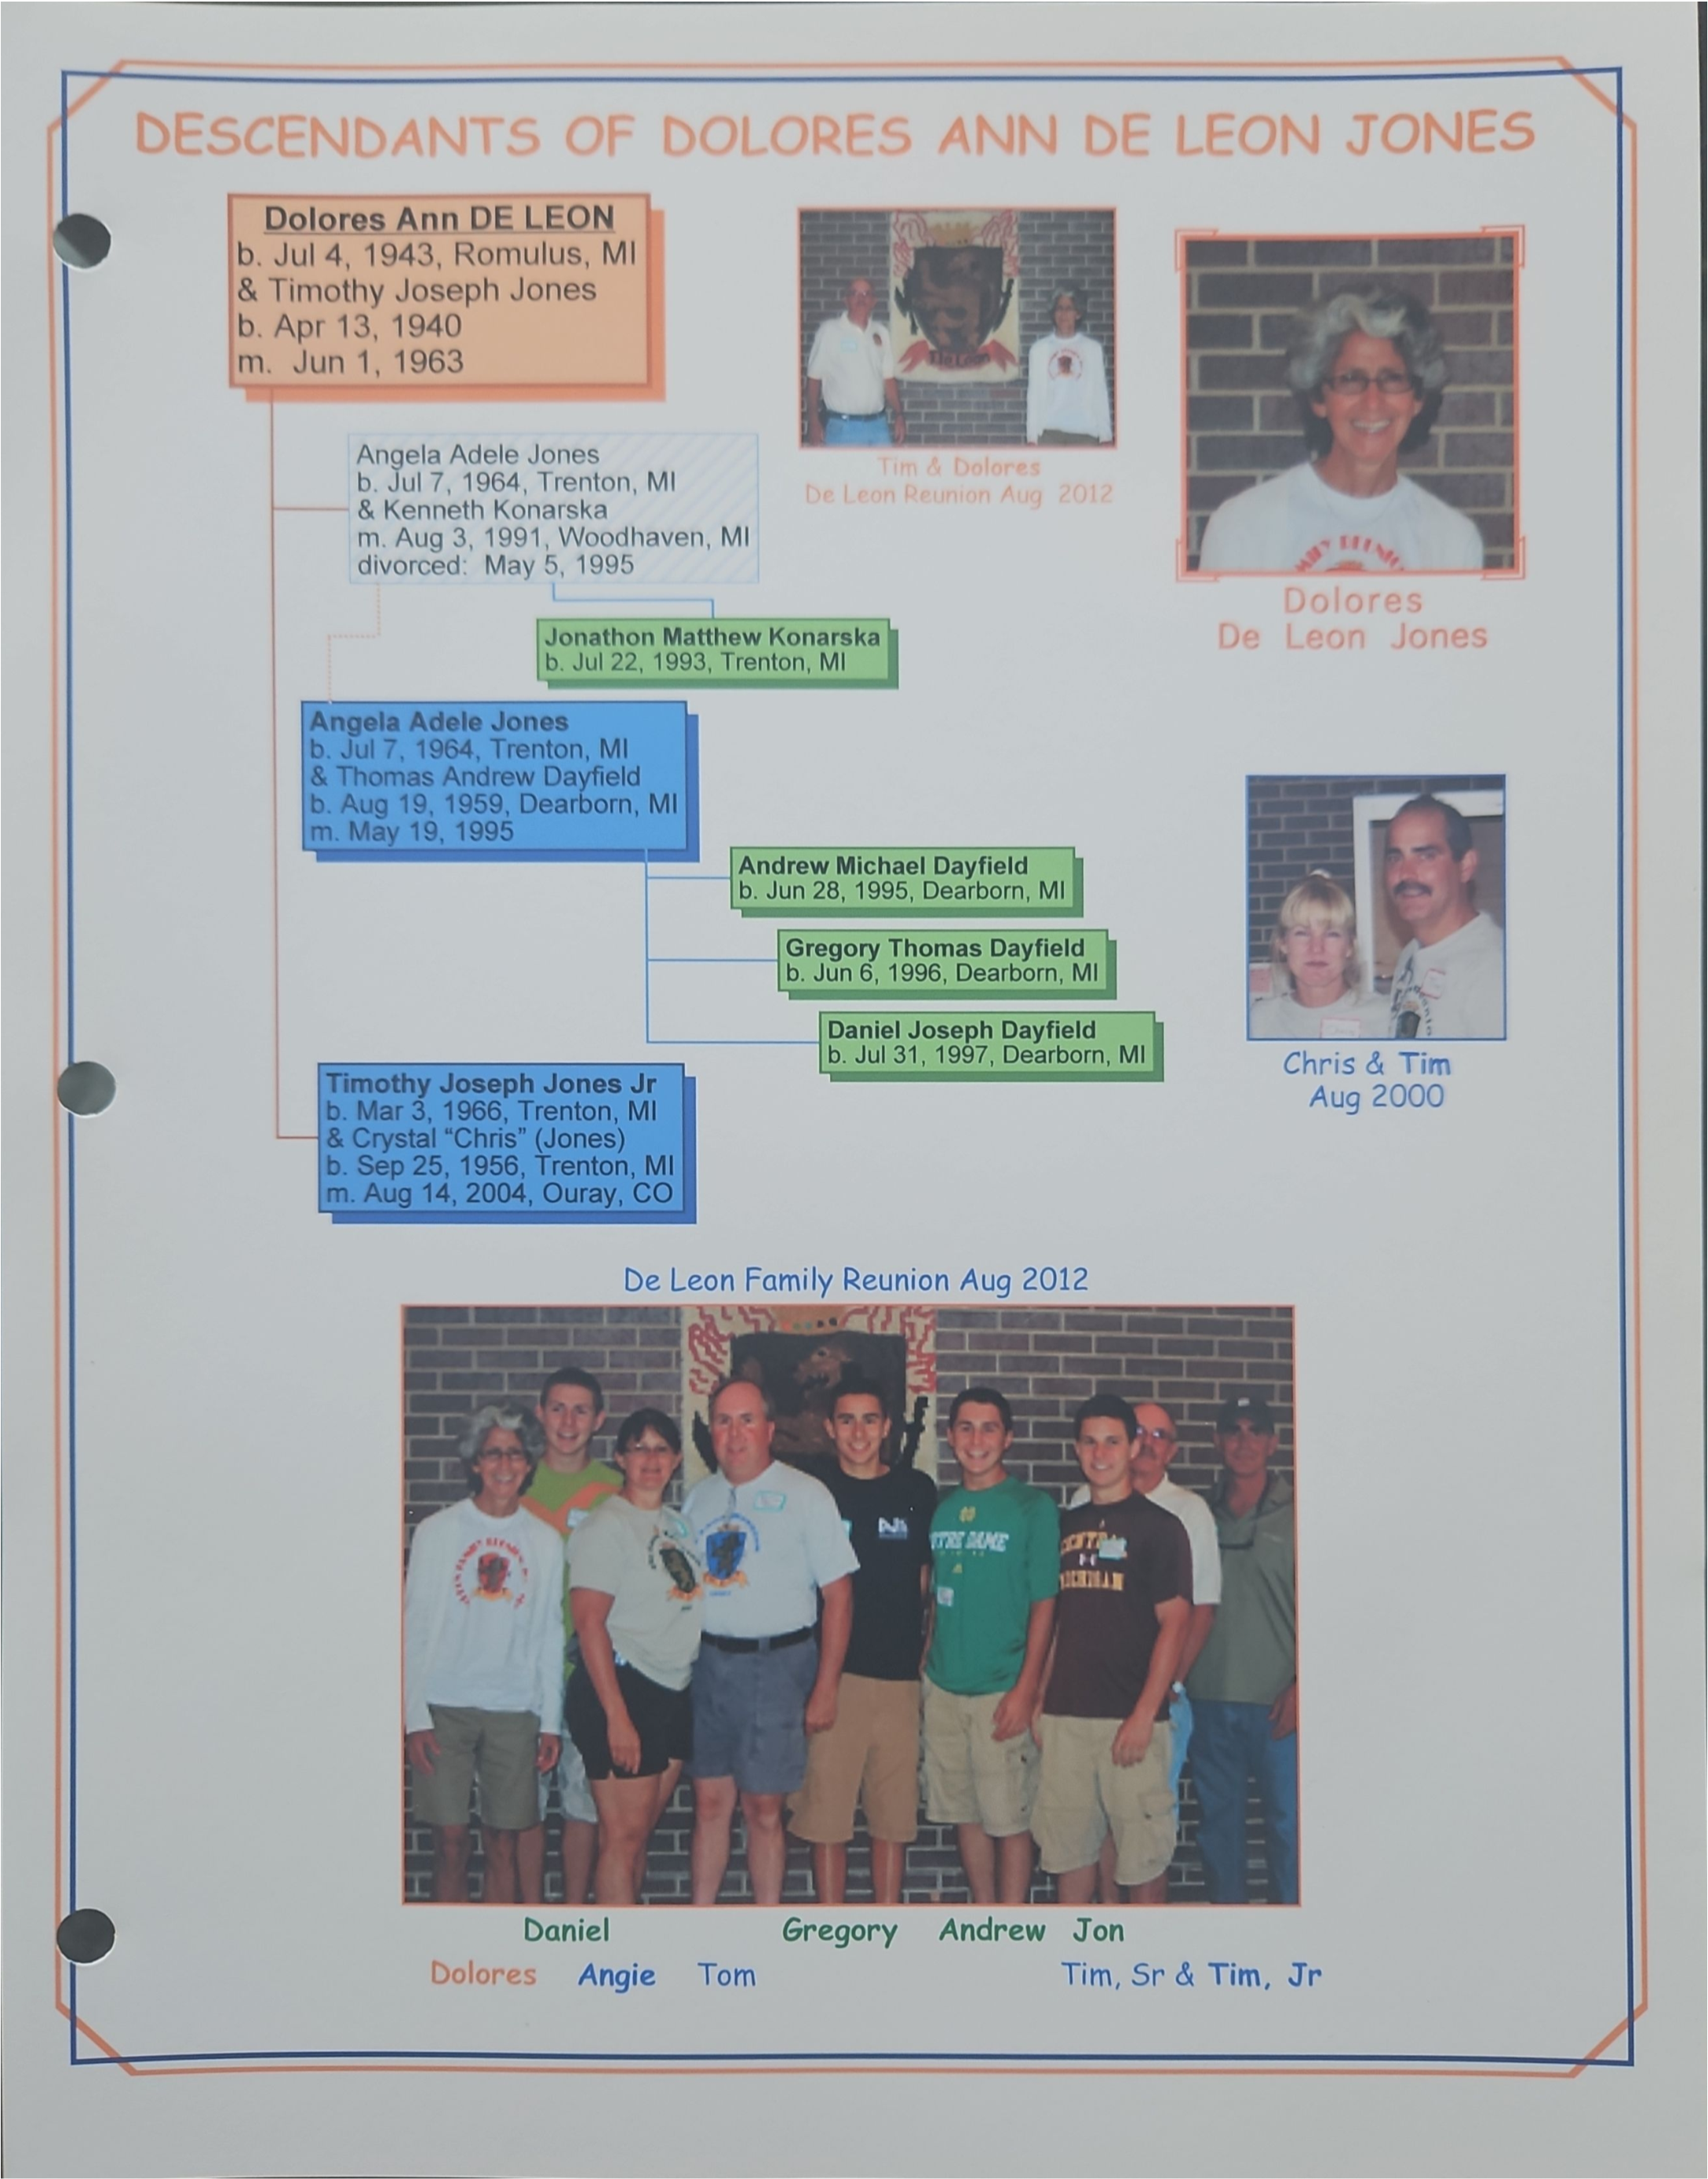 DESCENDANTS OF DOLORES ANN DE LEON JONES
Dolores Ann DE LEON
b. Jul 4, 1943, Romulus, MI
& Timothy Joseph Jones
b. Apr 13, 1940
m. Jun 1, 1963
De Leon
Tim & Dolores
De Leon Reunion Aug 2012
Dolores
De Leon Jones
Angela Adele Jones
b. Jul 7, 1964, Trenton, MI
& Kenneth Konarska
m. Aug 3, 1991, Woodhaven, MI
divorced: May 5, 1995
Jonathon Matthew Konarska
b. Jul 22, 1993, Trenton, MI
Angela Adele Jones
b. Jul 7, 1964, Trenton, MI
& Thomas Andrew Dayfield
b. Aug 19, 1959, Dearborn, MI
m. May 19, 1995
Andrew Michael Dayfield
b. Jun 28, 1995, Dearborn, MI
Gregory Thomas Dayfield
b. Jun 6, 1996, Dearborn, MI
Daniel Joseph Dayfield
b. Jul 31, 1997, Dearborn, MI
Chris & Tim
Aug 2000
Timothy Joseph Jones Jr
b. Mar 3, 1966, Trenton, MI
& Crystal “Chris” (Jones)
b. Sep 25, 1956, Trenton, MI
m. Aug 14, 2004, Ouray, CO
De Leon Family Reunion Aug 2012
NOTRE DAME
CENTRAL
MICHIGAN
Daniel Gregory Andrew Jon
Dolores Angie Tom Tim, Sr & Tim, Jr